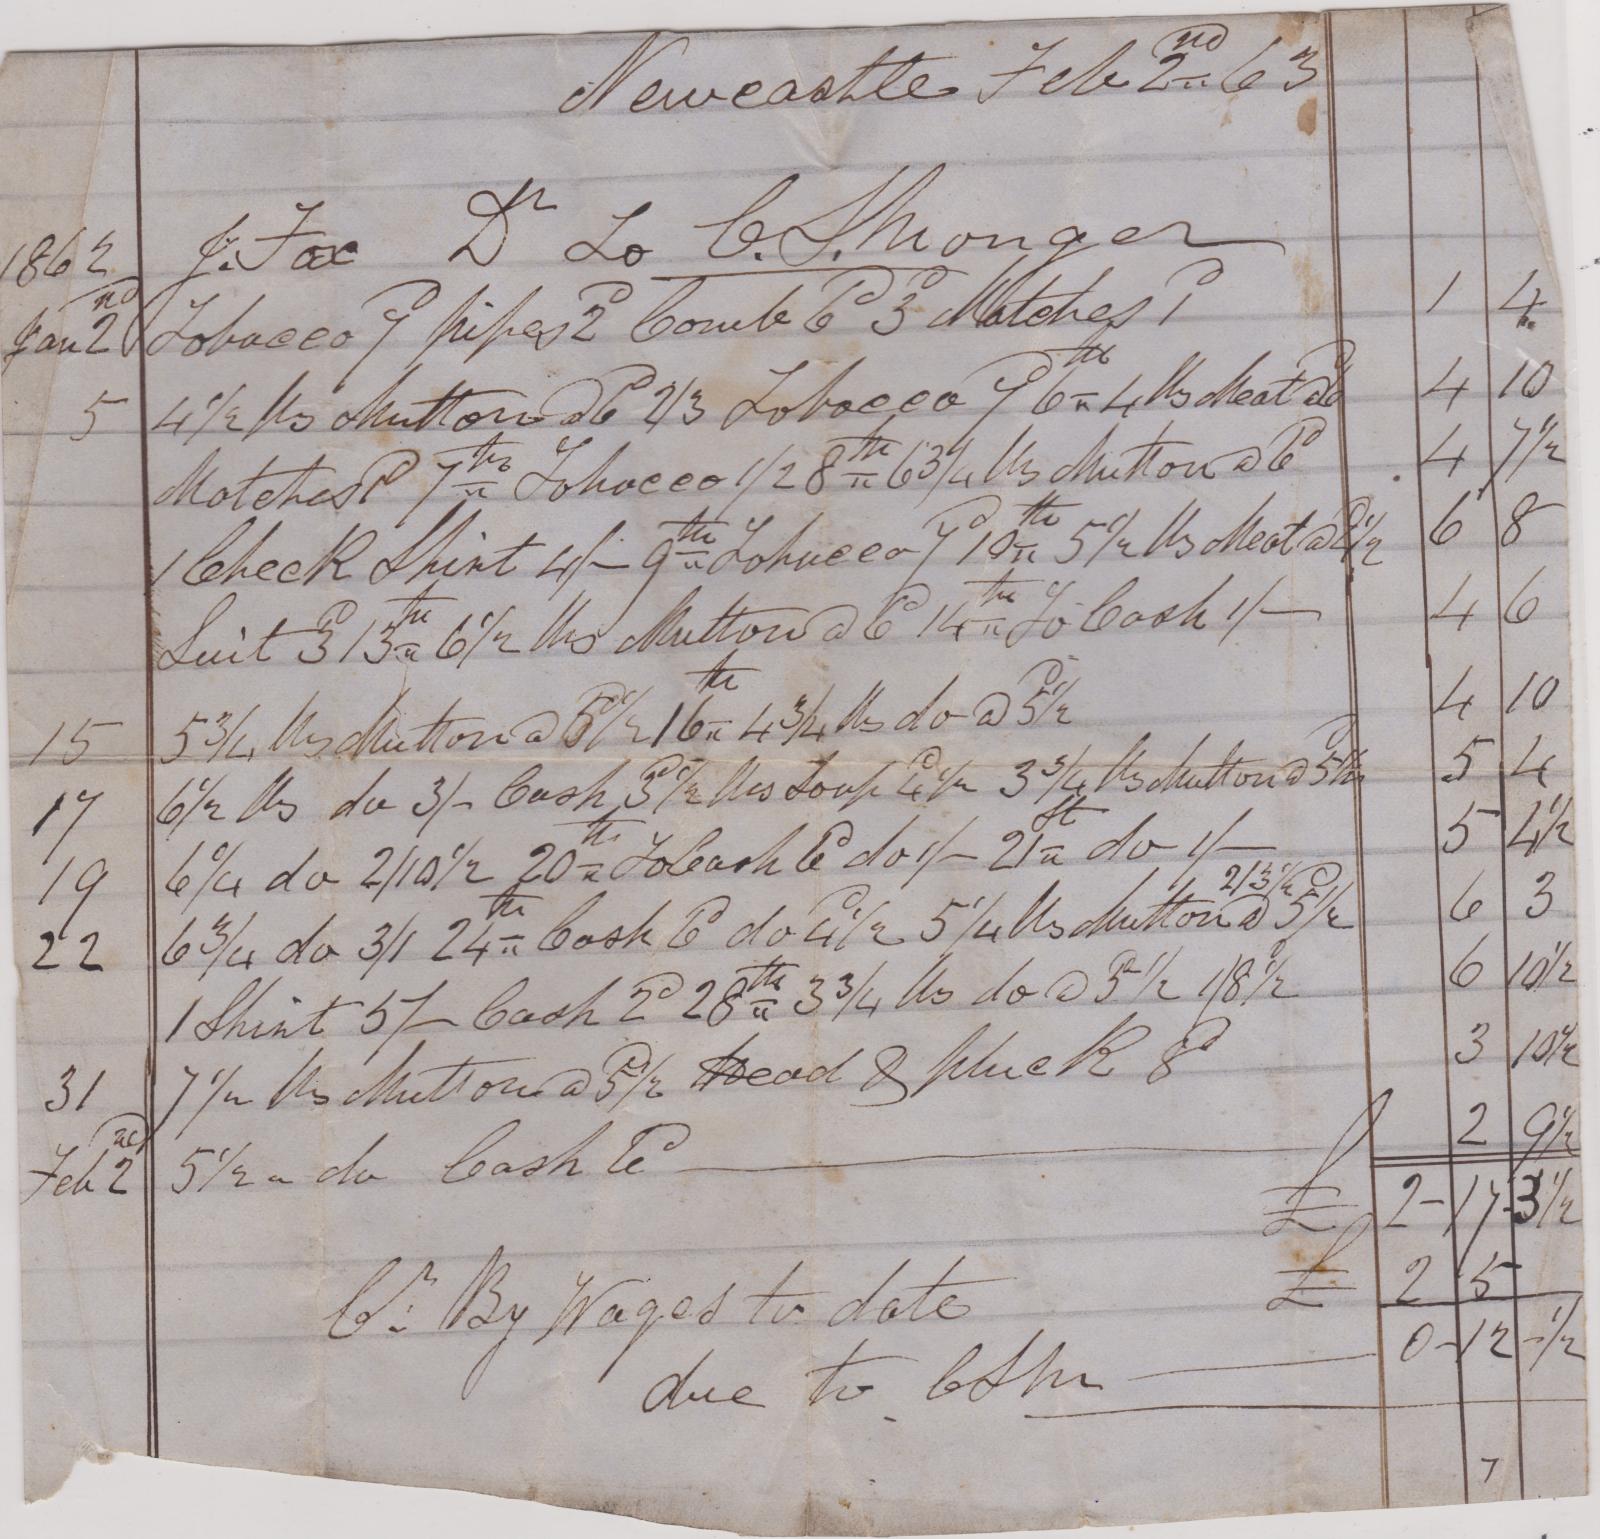 Newcastle Feb 2nd 63
1862 J. Fox Dr To C. S. Monger
Jan 2nd Tobacco 7d pipes 2d Comb 6d 3d Matches 1d 1 4
5 4 1/2 lbs Mutton @ 6d 2/3 Tobacco 7d 6th 4 lbs Meat @ 6 4 10
Matches 1d 7th Tobacco 1/2 8th 6 3/4 lbs Mutton @ 6d 4 7 1/2
1 Check Shirt 4/- 9th Tobacco 7d 10th 5 1/2 lbs Meat @ 1/2 6 8
Suit 3d 13th 6 1/2 lbs Mutton @ 6d 14th To Cash 1/- 4 6
15 5 3/4 lbs Mutton @ 5d 1/2 16th 4 3/4 lbs do @ 5d 1/2 4 10
17 6 1/2 lbs do 3/- Cash 3d 1/2 lbs Soap 4d 1/2 3 3/4 lbs Mutton @ 5d 1/2 5 4
19 6 1/4 do 2/10 1/2 20th To Cash 6d do 1/- 21st do 1/- 5 4 1/2
22 6 3/4 do 3/1 24th Cash 6d do 4d 1/2 5 1/4 lbs Mutton @ 5d 1/2 2/3 1/2 6 3
1 Shirt 5/- Cash 2d 28th 3 3/4 lbs do @ 5 1/2 1/8 1/2 6 10 1/2
31 7 1/2 lbs Mutton @ 5d 1/2 Head & pluck 8d 3 10 1/2
Feb 2nd 5 1/2 " do Cash 6d 2 9 1/2
£ 2-17-3 1/2
Cr. By Wages to date £ 2 5
due to CSM 0-12-1/2
7